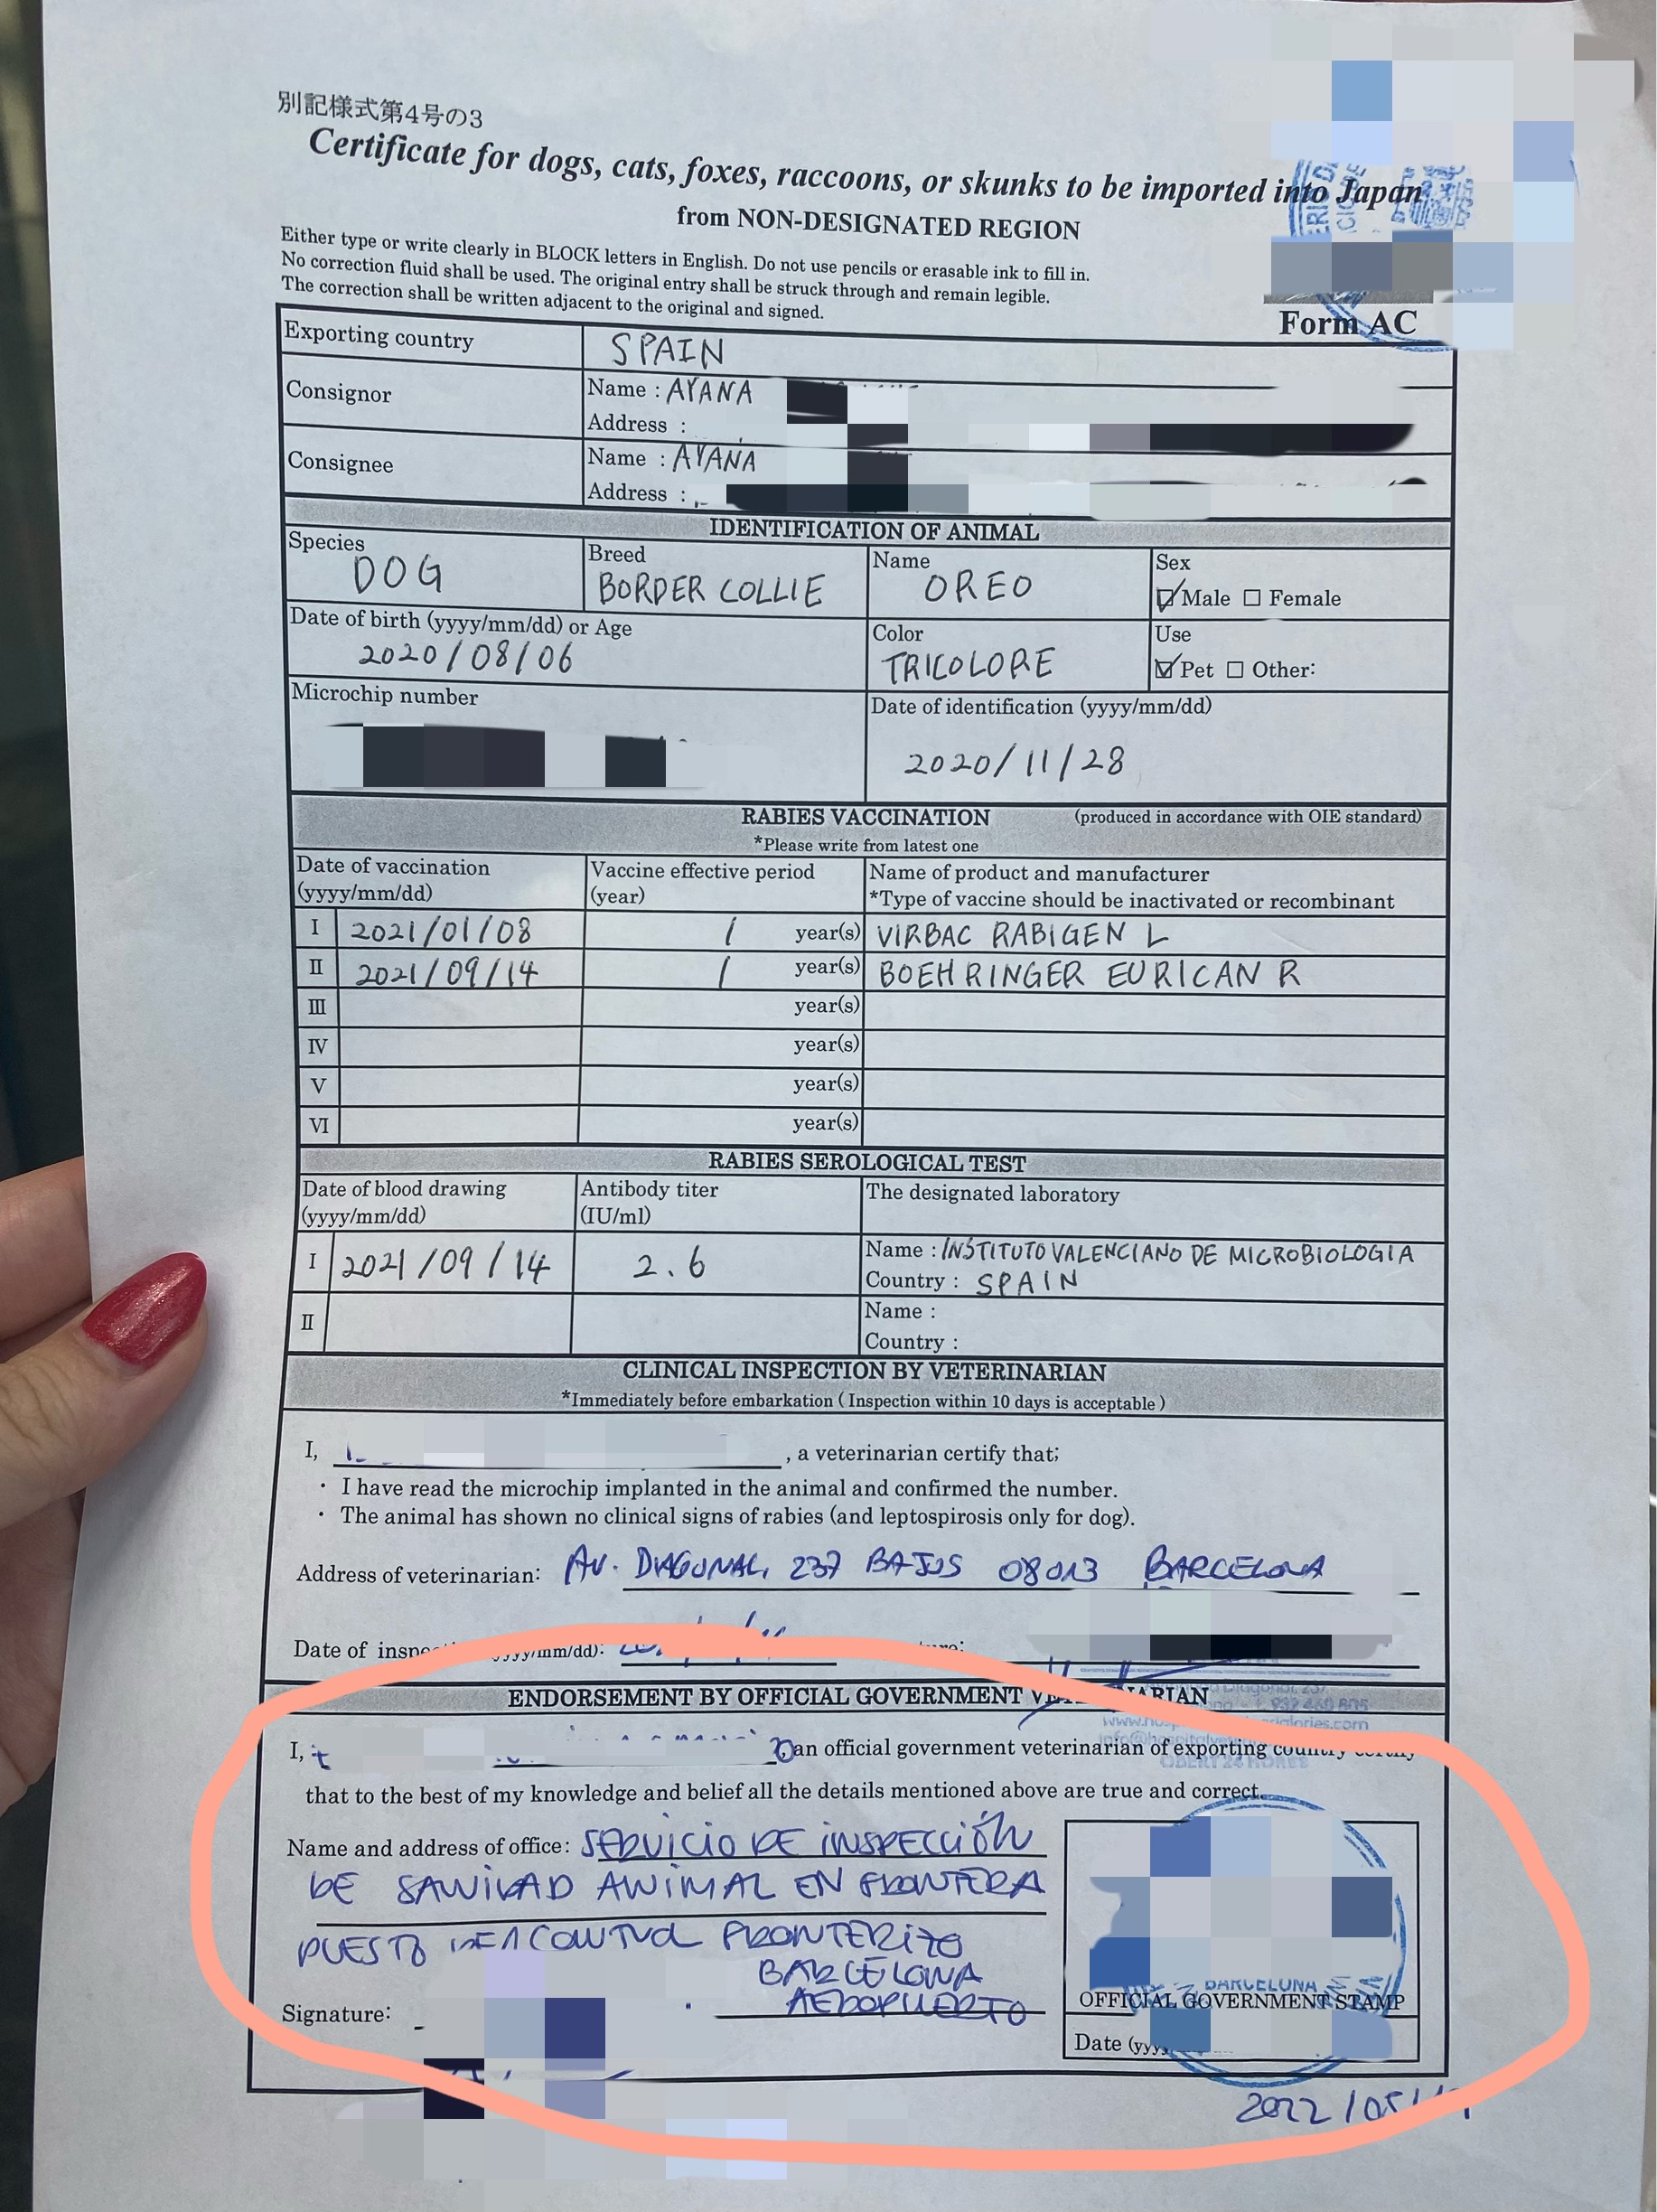 別記様式第4号の3
Certificate for dogs, cats, foxes, raccoons, or skunks to be imported into Japan
from NON-DESIGNATED REGION
Either type or write clearly in BLOCK letters in English. Do not use pencils or erasable ink to fill in.
No correction fluid shall be used. The original entry shall be struck through and remain legible.
The correction shall be written adjacent to the original and signed.
Form AC
Exporting country SPAIN
Consignor Name : AYANA
Address :
Consignee Name : AYANA
Address :
IDENTIFICATION OF ANIMAL
Species Breed Name Sex
DOG BORDER COLLIE OREO Male Female
Date of birth (yyyy/mm/dd) or Age Color Use
2020/08/06 TRICOLORE Pet Other:
Microchip number Date of identification (yyyy/mm/dd)
2020/11/28
RABIES VACCINATION (produced in accordance with OIE standard)
*Please write from latest one
Date of vaccination Vaccine effective period Name of product and manufacturer
(yyyy/mm/dd) (year) *Type of vaccine should be inactivated or recombinant
I 2021/01/08 1 year(s) VIRBAC RABIGEN L
II 2021/09/14 1 year(s) BOEHRINGER EURICAN R
III year(s)
IV year(s)
V year(s)
VI year(s)
RABIES SEROLOGICAL TEST
Date of blood drawing Antibody titer The designated laboratory
(yyyy/mm/dd) (IU/ml)
I 2021/09/14 2.6 Name : INSTITUTO VALENCIANO DE MICROBIOLOGIA
Country : SPAIN
II Name :
Country :
CLINICAL INSPECTION BY VETERINARIAN
*Immediately before embarkation ( Inspection within 10 days is acceptable )
I, , a veterinarian certify that;
・ I have read the microchip implanted in the animal and confirmed the number.
・ The animal has shown no clinical signs of rabies (and leptospirosis only for dog).
Address of veterinarian: AV. DIAGONAL, 237 BAJOS 08013 BARCELONA
Date of
ENDORSEMENT BY OFFICIAL GOVERNMENT
I, , an official government veterinarian of exporting country
that to the best of my knowledge and belief all the details mentioned above are true and correct.
Name and address of office: SERVICIO DE INSPECCIÓN
DE SANIDAD ANIMAL EN FRONTERA
PUESTO DE CONTROL FRONTERIZO
BARCELONA
AEROPUERTO
Signature:
BARCELONA
OFFICIAL GOVERNMENT STAMP
Date
2022/05/